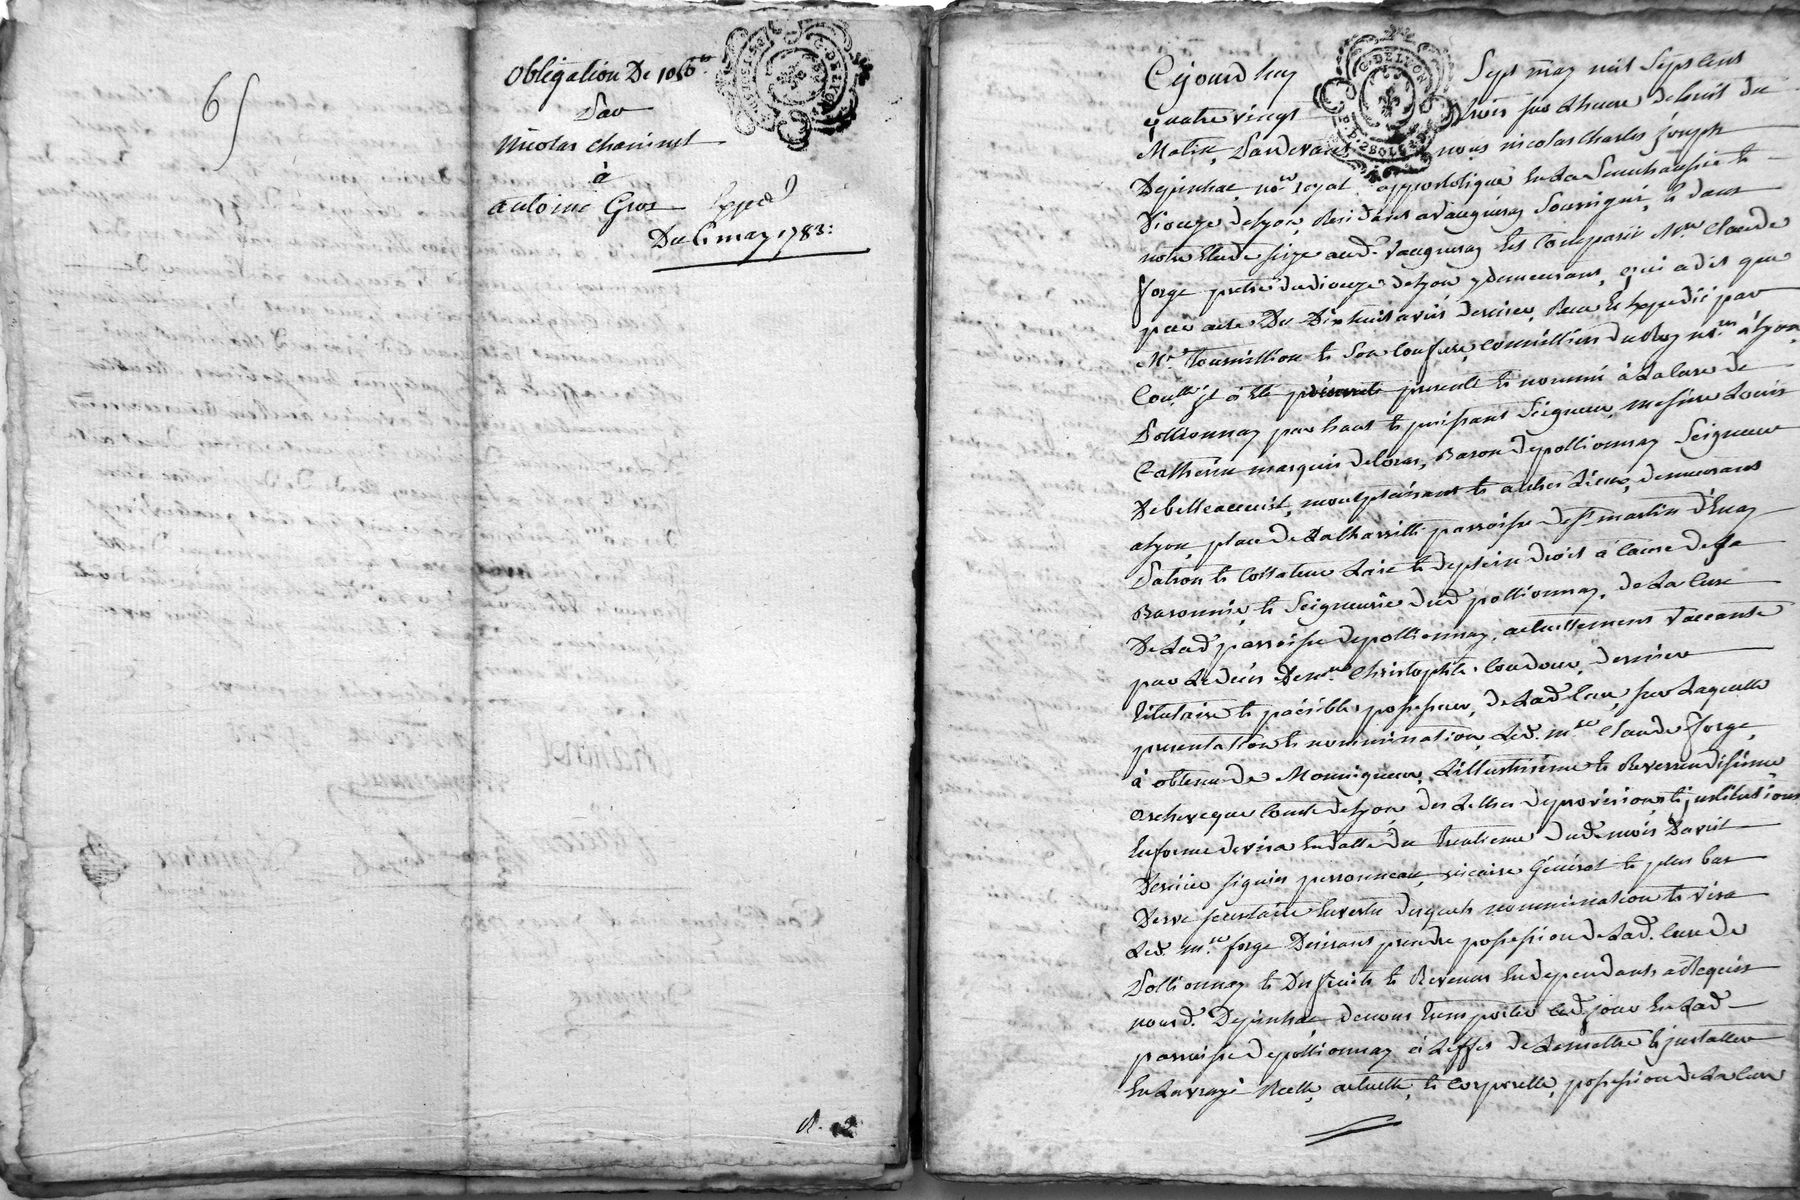 65
Obligation De 106ᵗᵗ
Par
Nicolas chavinet
à
antoine Gros Exped
Du 6 may 1783:
Cejourd huy Sept may mil Sept Cent
quatre vingt trois sur Lheure de huit du
Matin, Pardevant nous nicolas charles joseph
Depinhac noʳᵉ royal appostolique En La Senechaussée et
Dioceze de Lyon, Residant a vaugneray Soussigné, et dans
notre Etude size aud. vaugneray Est Comparu Mʳᵉ Claude
forge pretre du dioceze de Lyon y demeurant, qui a dit que
par acte Du Dix huit avril dernier, Recu et Expedié par
Mᵉ Tournillion et Son Confrere, Conseillers du Roy noʳᵉˢ à Lyon,
Conᵗˡᵉ jl a été presenté et nommé à La Cure de
Pollionnay par haut et puissant Seigneur, messire Louis
Catherin marquis de Loras, Baron de pollionnay Seigneur
De belleaccueil, montplaisant et autres Lieux, demeurant
a Lyon, place de Louis parroisse de Sᵗ martin d'Enay
Patron et Collateur Laic et de plein droit à Cause de Sa
Baronnie et Seigneurie dud. pollionnay, de La Cure
De Lad. parroisse de pollionnay, actuellement Vaccante
par Le decès De mʳᵉ Christophle Coudour, dernier
titulaire et paisible possesseur, de Lad. Cure, sur Laquelle
presentation et nommination, Led. mʳᵉ Claude forge,
à obtenu de Monseigneur, L'illustrissime et Reverendissime
archeveque Comte de Lyon, des Lettres de provisions et institutions
En forme de visa En datte du trentieme dud. mois D'avril
Dernier signées personneau, vicaire Général et plus bas
Desve secretaire En vertu desquels nommination et visa
Led. mʳᵉ forge Desirant prendre possession de Lad. Cure de
Pollionnay et Des fruits et Revenus En dependants a Requis
nousd. Depinhac de nous transporter Ced. jour En Lad.
parroisse de pollionnay à L'effet de Le mettre et installer
En La vraye Réelle, actuelle, et Corporelle, possession de La Cure
R. 2